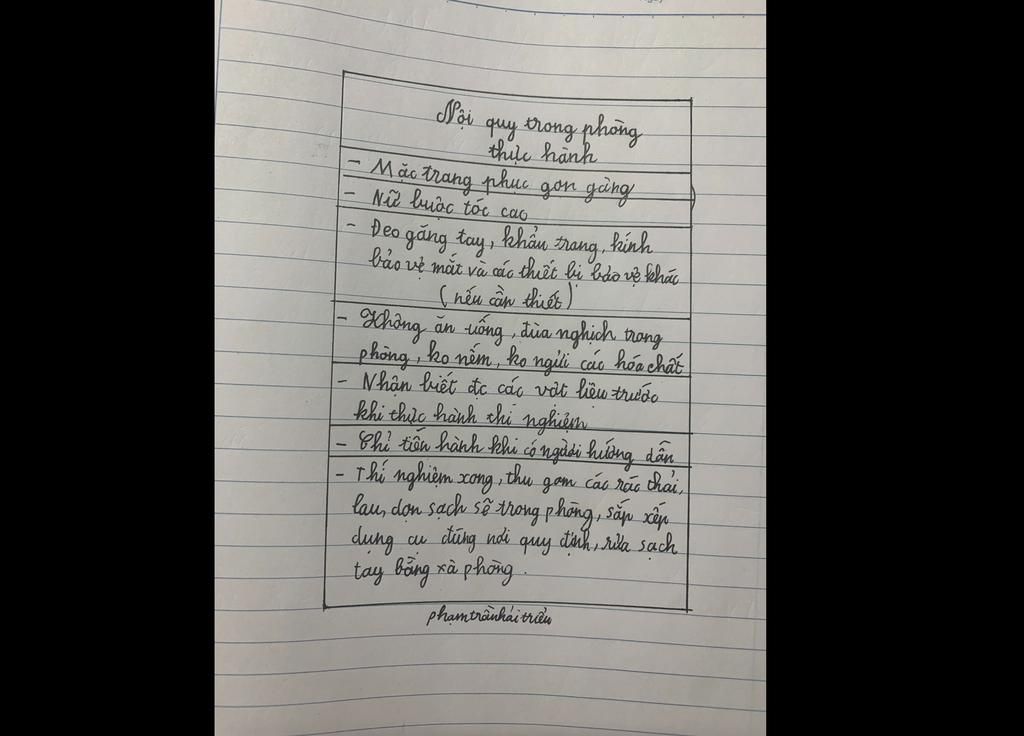 Nội quy trong phòng
thực hành
- Mặc trang phục gọn gàng
- Nữ buộc tóc cao
- Đeo găng tay, khẩu trang, kính
bảo vệ mắt và các thiết bị bảo vệ khác
(nếu cần thiết)
- Không ăn uống, đùa nghịch trong
phòng, ko nếm, ko ngửi các hóa chất
- Nhận biết đc các vật liệu trước
khi thực hành thí nghiệm
- Chỉ tiến hành khi có người hướng dẫn
- Thí nghiệm xong, thu gom các rác thải,
lau, dọn sạch sẽ trong phòng, sắp xếp
dụng cụ đúng nơi quy định, rửa sạch
tay bằng xà phòng.
phạmtrầnhảitriều